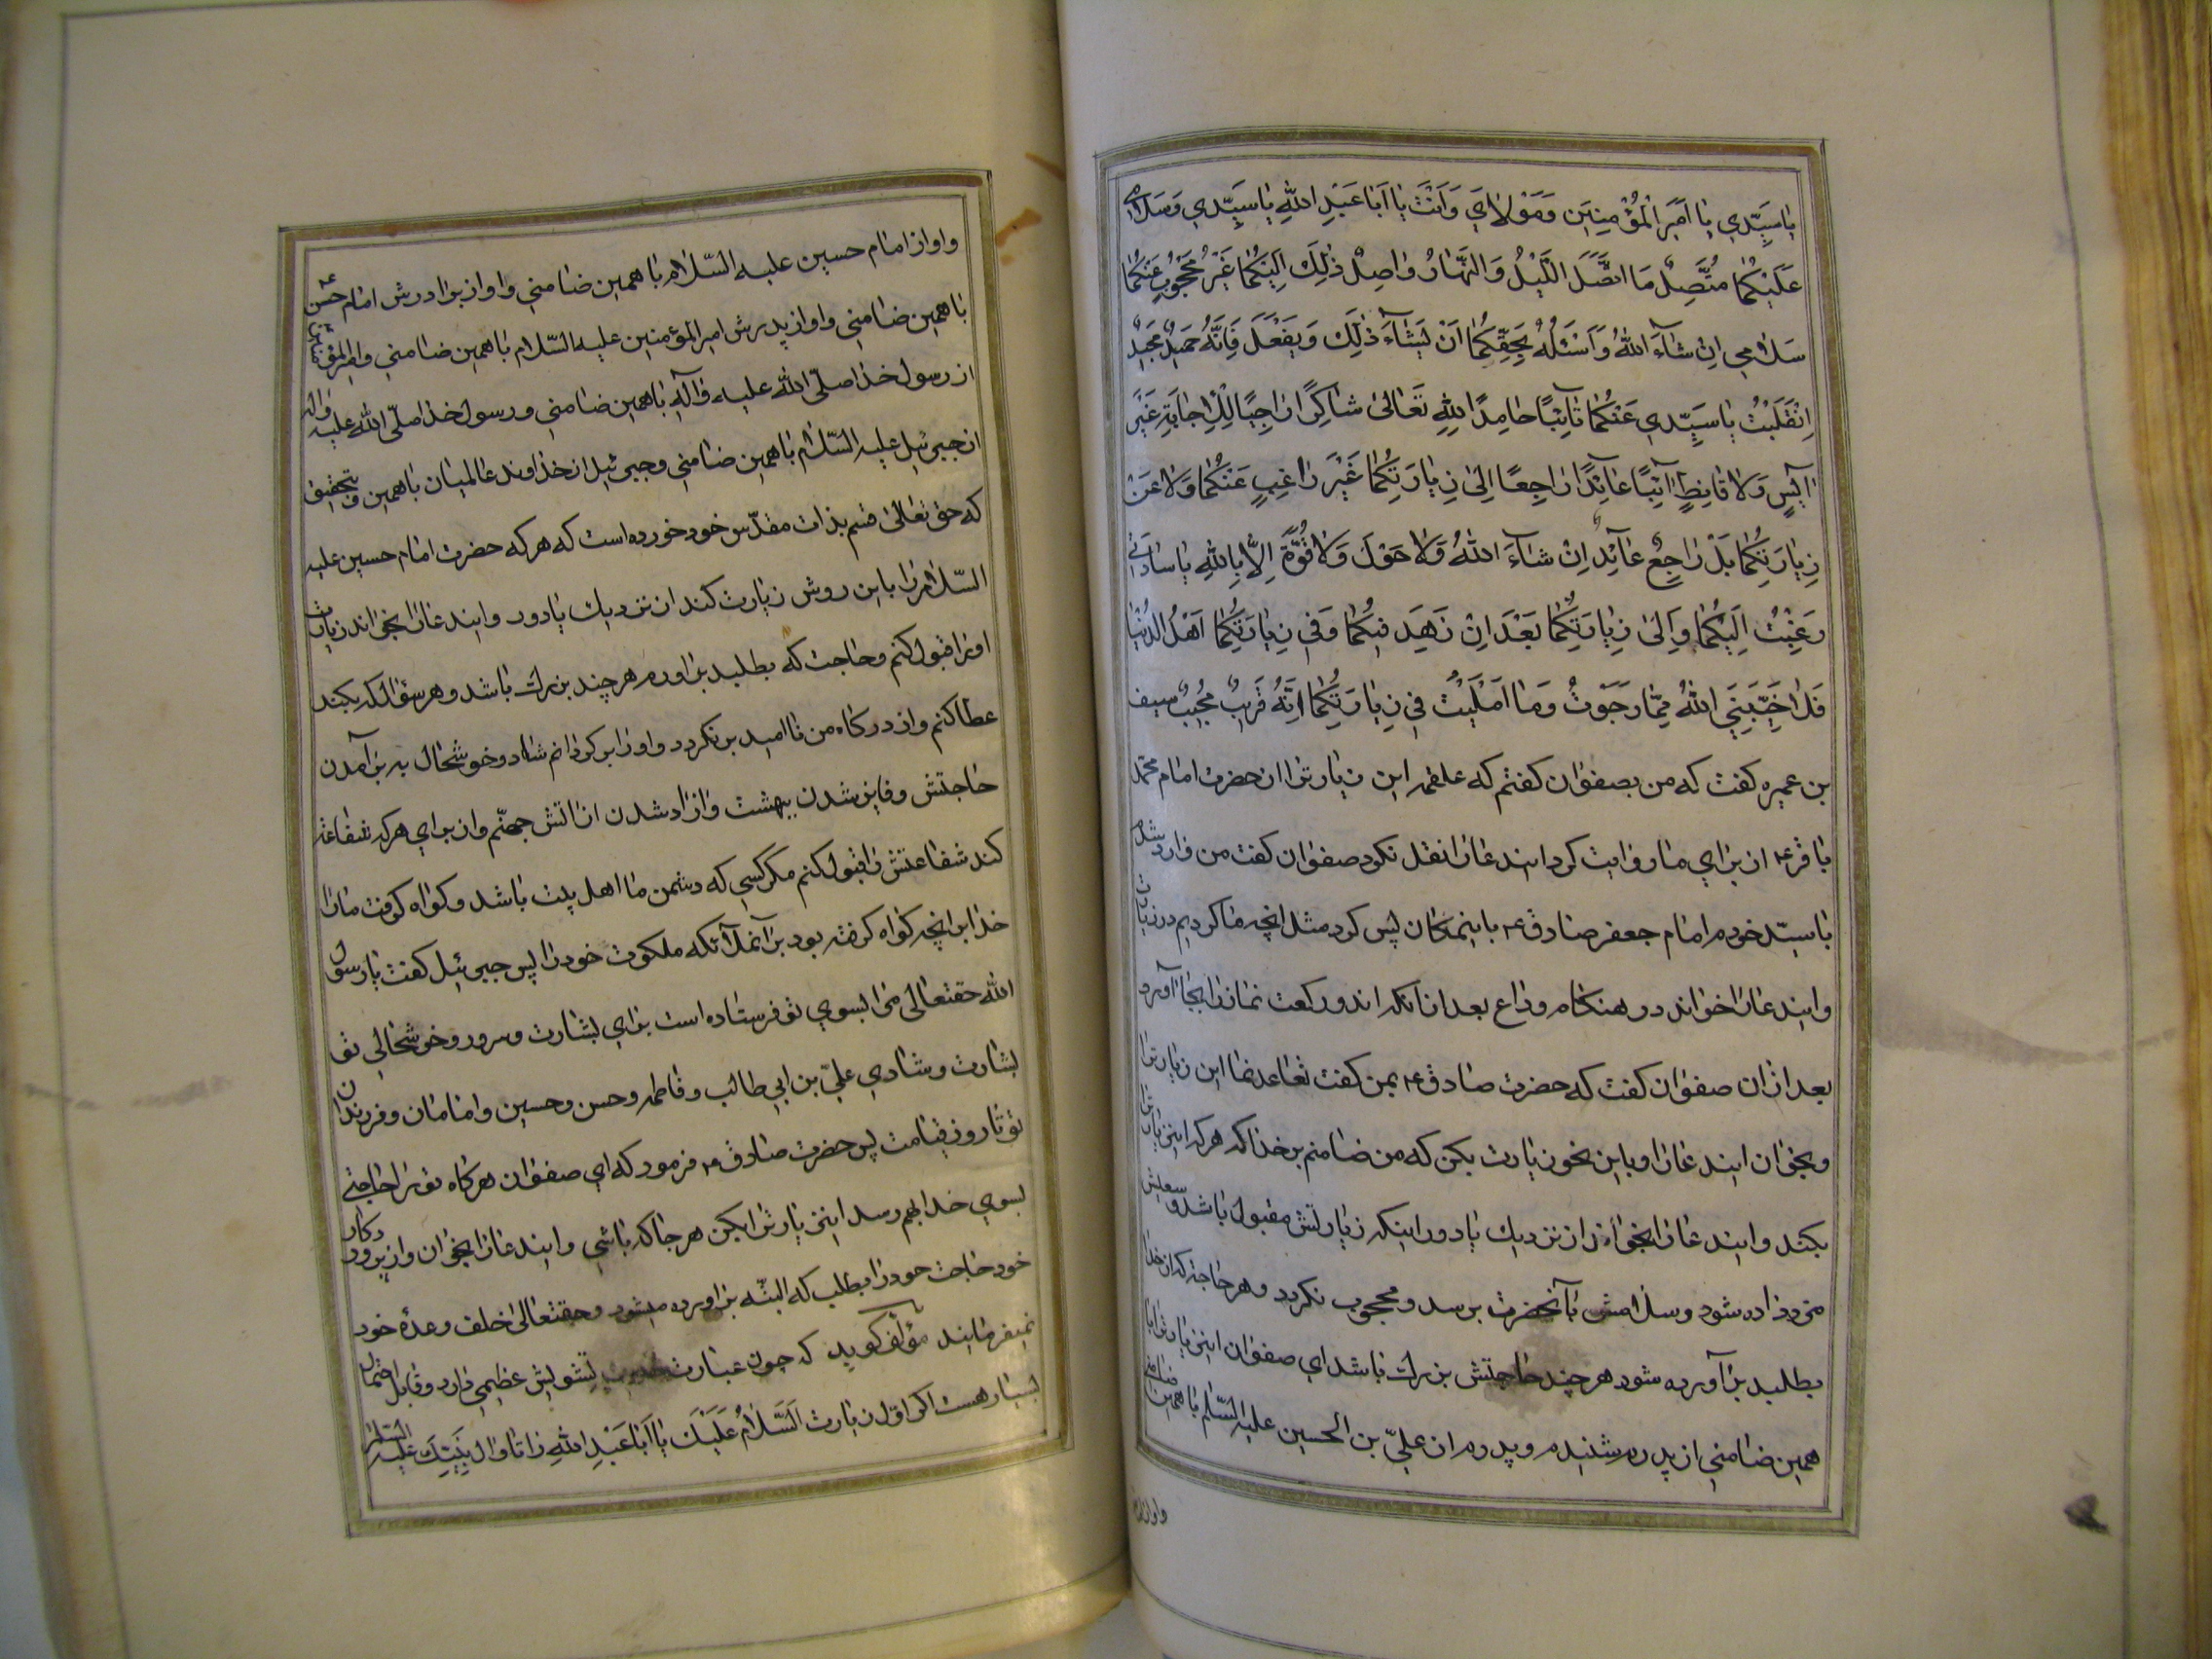 یا سَیِّدی یا اَمیرَ الْمُؤْمِنینَ وَمَوْلایَ وَاَنْتَ یا اَبا عَبْدِ اللهِ یا سَیِّدی وَسَلامی
عَلَیْکُما مُتَّصِلٌ مَا اتَّصَلَ اللَّیْلُ وَالنَّهارُ واصِلٌ ذٰلِکَ اِلَیْکُما غَیْرُ مَحْجُوبٍ عَنْکُما
سَلامی اِنْ شآءَ اللهُ وَاَسْئَلُهُ بِحَقِّکُما اَنْ یَشآءَ ذٰلِکَ وَیَفْعَلَ فَاِنَّهُ حَمیدٌ مَجیدٌ
اِنْقَلَبْتُ یا سَیِّدی عَنْکُما تآئِبًا حامِدًا لِلّهِ تَعالی شاکِرًا راجِیًا لِلْاِجابَةِ غَیْرَ
آیِسٍ وَلا قانِطٍ آئِبًا عآئِدًا راجِعًا اِلی زِیارَتِکُما غَیْرَ راغِبٍ عَنْکُما وَلا عَنْ
زِیارَتِکُما بَلْ راجِعٌ عآئِدٌ اِنْ شآءَ اللهُ وَلا حَوْلَ وَلا قُوَّةَ اِلّا بِاللهِ یا ساداتی
رَغِبْتُ اِلَیْکُما وَاِلی زِیارَتِکُما بَعْدَ اَنْ زَهِدَ فیکُما وَفی زِیارَتِکُما اَهْلُ الدُّنْیا
فَلا خَیَّبَنِیَ اللهُ مِمّا رَجَوْتُ وَما اَمَّلْتُ فی زِیارَتِکُما اِنَّهُ قَریبٌ مُجیبٌ سیف
بن عمیره گفت که من بصفوان گفتم که علقمه این زیارترا از حضرت امام محمد
باقر ع از برای ما روایت کرد ایندعا را نقل نکرد صفوان گفت من وارد شدم
با سیّد خودم امام جعفر صادق ع باینمکان پس کرد مثل آنچه ما کردیم در زیارت
و ایندعا را خواند در هنکام وداع بعد از آنکه دو رکعت نماز را بجا آورد
بعد از ان صفوان گفت که حضرت صادق ع بمن گفت تعاهد نما این زیارترا
و بخوان ایندعا را و باین نحو زیارت بکن که من ضامنم بر خدا که هر که اینزیارترا
بکند و ایندعا را بخواند از نزدیك یا دور اینکه زیارتش مقبول باشد و سعیش
مزد داده شود و سلامش بآنحضرت برسد و محجوب نکردد و هر حاجت که از خدا
بطلبد برآورده شود هر چند حاجتش بزرك باشد ای صفوان اینزیارترا با
همین ضامنی از پدرم شنیدم و پدرم از علیّ بن الحسین علیه السّلام با همین ضامنی
و او از امام
و او از امام حسین علیه السّلام با همین ضامنی و او از برادرش امام حسن ع
با همین ضامنی و او از پدرش امیر المؤمنین علیه السّلام با همین ضامنی و امیر المؤمنین
از رسول خدا صلّی الله علیه و آله با همین ضامنی و رسول خدا صلّی الله علیه و اله
از جبرئیل علیه السّلام با همین ضامنی و جبرئیل از خداوند عالمیان با همین و بتحقیق
که حق تعالی قسم بذات مقدّس خود خورده است که هر که حضرت امام حسین علیه
السّلام را باین روش زیارت کند از نزدیك یا دور و ایندعا را بخواند زیارت
او را قبول کنم و حاجت که بطلبد براورم هر چند بزرك باشد و هر سؤالکه بکند
عطا کنم و از درکاه من نا امید برنکردد و او را برکردانم شاد و خوشحال به برآمدن
حاجتش و فایز شدن ببهشت و ازاد شدن از اتش جهنّم و از برای هر که شفاعت
کند شفاعتش را قبول کنم مکر کسی که دشمن ما اهل بیت باشد و کواه کرفت مارا
خدا بر انچه کواه کرفته بود بر آنملائکه ملکوت خود را پس جبرئیل کفت یا رسول
الله حقتعالی مرا بسوی تو فرستاده است برای بشارت و سرور و خوشحالی تو
بشارت و شادی علیّ بن ابی طالب و فاطمه و حسن و حسین و امامان و فرزندان
تو تا روز قیامت پس حضرت صادق ع فرمود که ای صفوان هر کاه تو را حاجتی
بسوی خدا بهم رسد اینزیارترا بکن هر جا که باشی و ایندعا را بخوان و از پروردکار
خود حاجت خود را بطلب که البتّه براورده میشود و حقتعالی خلف وعدهٔ خود
نمیفرمایند مؤلف کوید که چون عبارت تشویش عظیمی دارد و قابل احتمال
بسیار هست اکر اوّل زیارت اَلسَّلامُ عَلَیْكَ یا اَبا عَبْدِ اللهِ